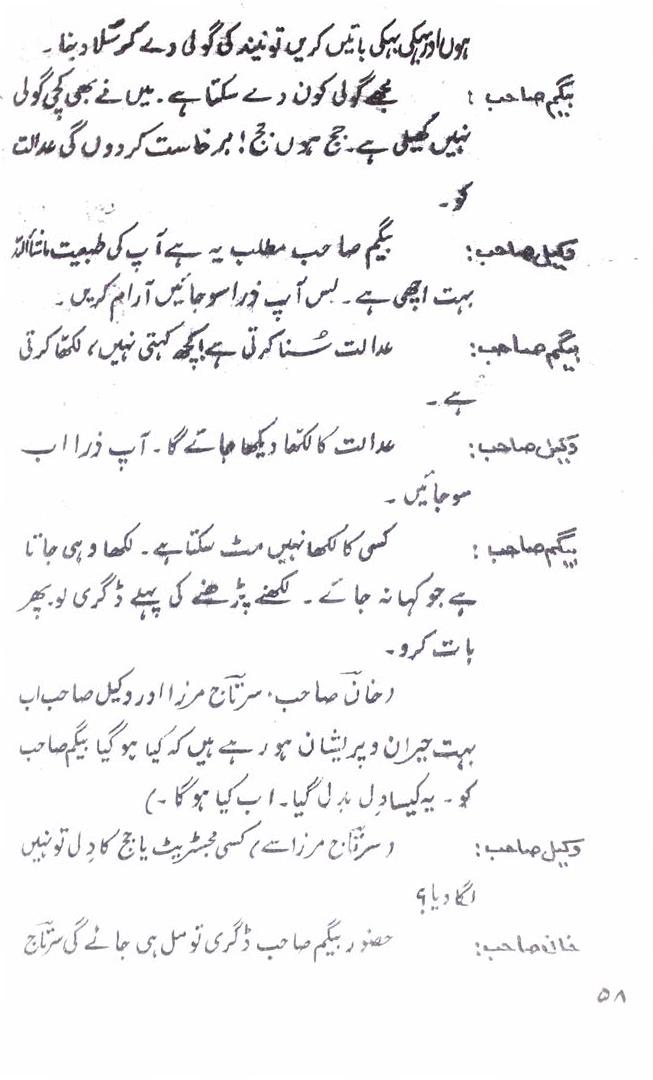 ہوں اور بہکی بہکی باتیں کریں تو نیند کی گولی دے کر سُلا دینا۔
بیگم صاحب : مجھے گولی کون دے سکتا ہے۔ میں نے بھی کچی گولی
نہیں کھیلی ہے۔ جج ہوں جج! برخاست کردوں گی عدالت
کو۔
وکیل صاحب: بیگم صاحب مطلب یہ ہے آپ کی طبیعت ماشأاللہ
بہت اچھی ہے۔ بس آپ ذرا سو جائیں آرام کریں۔
بیگم صاحب: عدالت سُنا کرتی ہے! کچھ کہتی نہیں، لکھا کرتی
ہے۔
وکیل صاحب: عدالت کا لکھا دیکھا جائے گا۔ آپ ذرا اب
سو جائیں۔
بیگم صاحب : کسی کا لکھا نہیں مٹ سکتا ہے۔ لکھا وہی جاتا
ہے جو کہا نہ جائے۔ لکھنے پڑھنے کی پہلے ڈگری لو۔ پھر
بات کرو۔
(خان صاحب، سرتاج مرزا اور وکیل صاحب اب
بہت حیران و پریشان ہو رہے ہیں کہ کیا ہو گیا بیگم صاحب
کو۔ یہ کیسا دل بدل گیا۔ اب کیا ہو گا۔)
وکیل صاحب: (سرتاج مرزا سے) کسی مجسٹریٹ یا جج کا دِل تو نہیں
لگا دیا؟
خان صاحب: حضور بیگم صاحب ڈگری تو مل ہی جائے گی سرتاج
۵۸